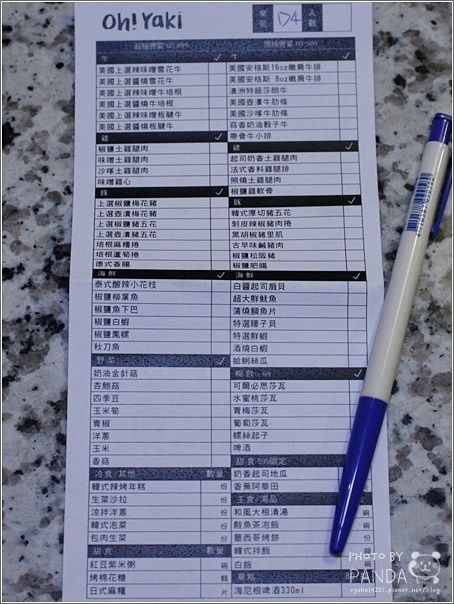 Oh! Yaki
桌號 D4 人數
牛 ✓
美國上選辣味噌雪花牛
美國上選醬燒雪花牛
美國上選辣味噌牛培根
美國上選醬燒牛培根
美國上選辣味噌板腱牛
美國上選醬燒板腱牛
雞 ✓
椒鹽土雞腿肉
味噌土雞腿肉
沙嗲土雞腿肉
味噌雞心
豚 ✓
上選椒鹽梅花豬
上選壺漬梅花豬
上選椒鹽豬五花
上選壺漬豬五花
培根麻糬捲
培根蘆筍捲
德式香腸
海鮮 ✓
泰式酸辣小花枝
椒鹽柳葉魚
椒鹽魚下巴
椒鹽白蝦
椒鹽鳳螺
秋刀魚
野菜 ✓
奶油金針菇
杏鮑菇
四季豆
玉米筍
青椒
洋蔥
玉米
香菇
冷食/其他 數量
韓式辣烤年糕 份
生菜沙拉 份
涼拌洋蔥 份
韓式泡菜 份
包肉生菜 份
甜食 數量
紅豆紫米粥 碗
烤棉花糖 顆
日式麻糬 片
牛 ✓
美國安格斯16oz嫩肩牛排
美國安格斯 8oz嫩肩牛排
澳洲特級莎朗牛
美國壺漬牛肋條
美國沙嗲牛肋條
蒜香奶油骰子牛
帶骨牛小排
雞 ✓
起司奶香土雞腿肉
法式香料雞腿排
照燒土雞腿肉
椒鹽雞軟骨
豚 ✓
韓式厚切豬五花
剝皮辣椒豬肉捲
黑胡椒豬里肌
古早味鹹豬肉
椒鹽松阪豬
椒鹽肥腸
海鮮 ✓
白醬起司扇貝
超大鮮魷魚
蒲燒鯛魚片
特選腰子貝
特選鮮蝦
酒燒白蝦
蛤蜊絲瓜
暢飲 ✓
可爾必思莎瓦
水蜜桃莎瓦
青梅莎瓦
葡萄莎瓦
螺絲起子
啤酒
甜食
奶香起司地瓜
香蕉阿華田
主食/湯品
和風大根清湯 碗
鮭魚茶泡飯
墨西哥烤餅
韓式拌飯
白飯
單點
海尼根啤酒330ml
PHOTO BY
PANDA